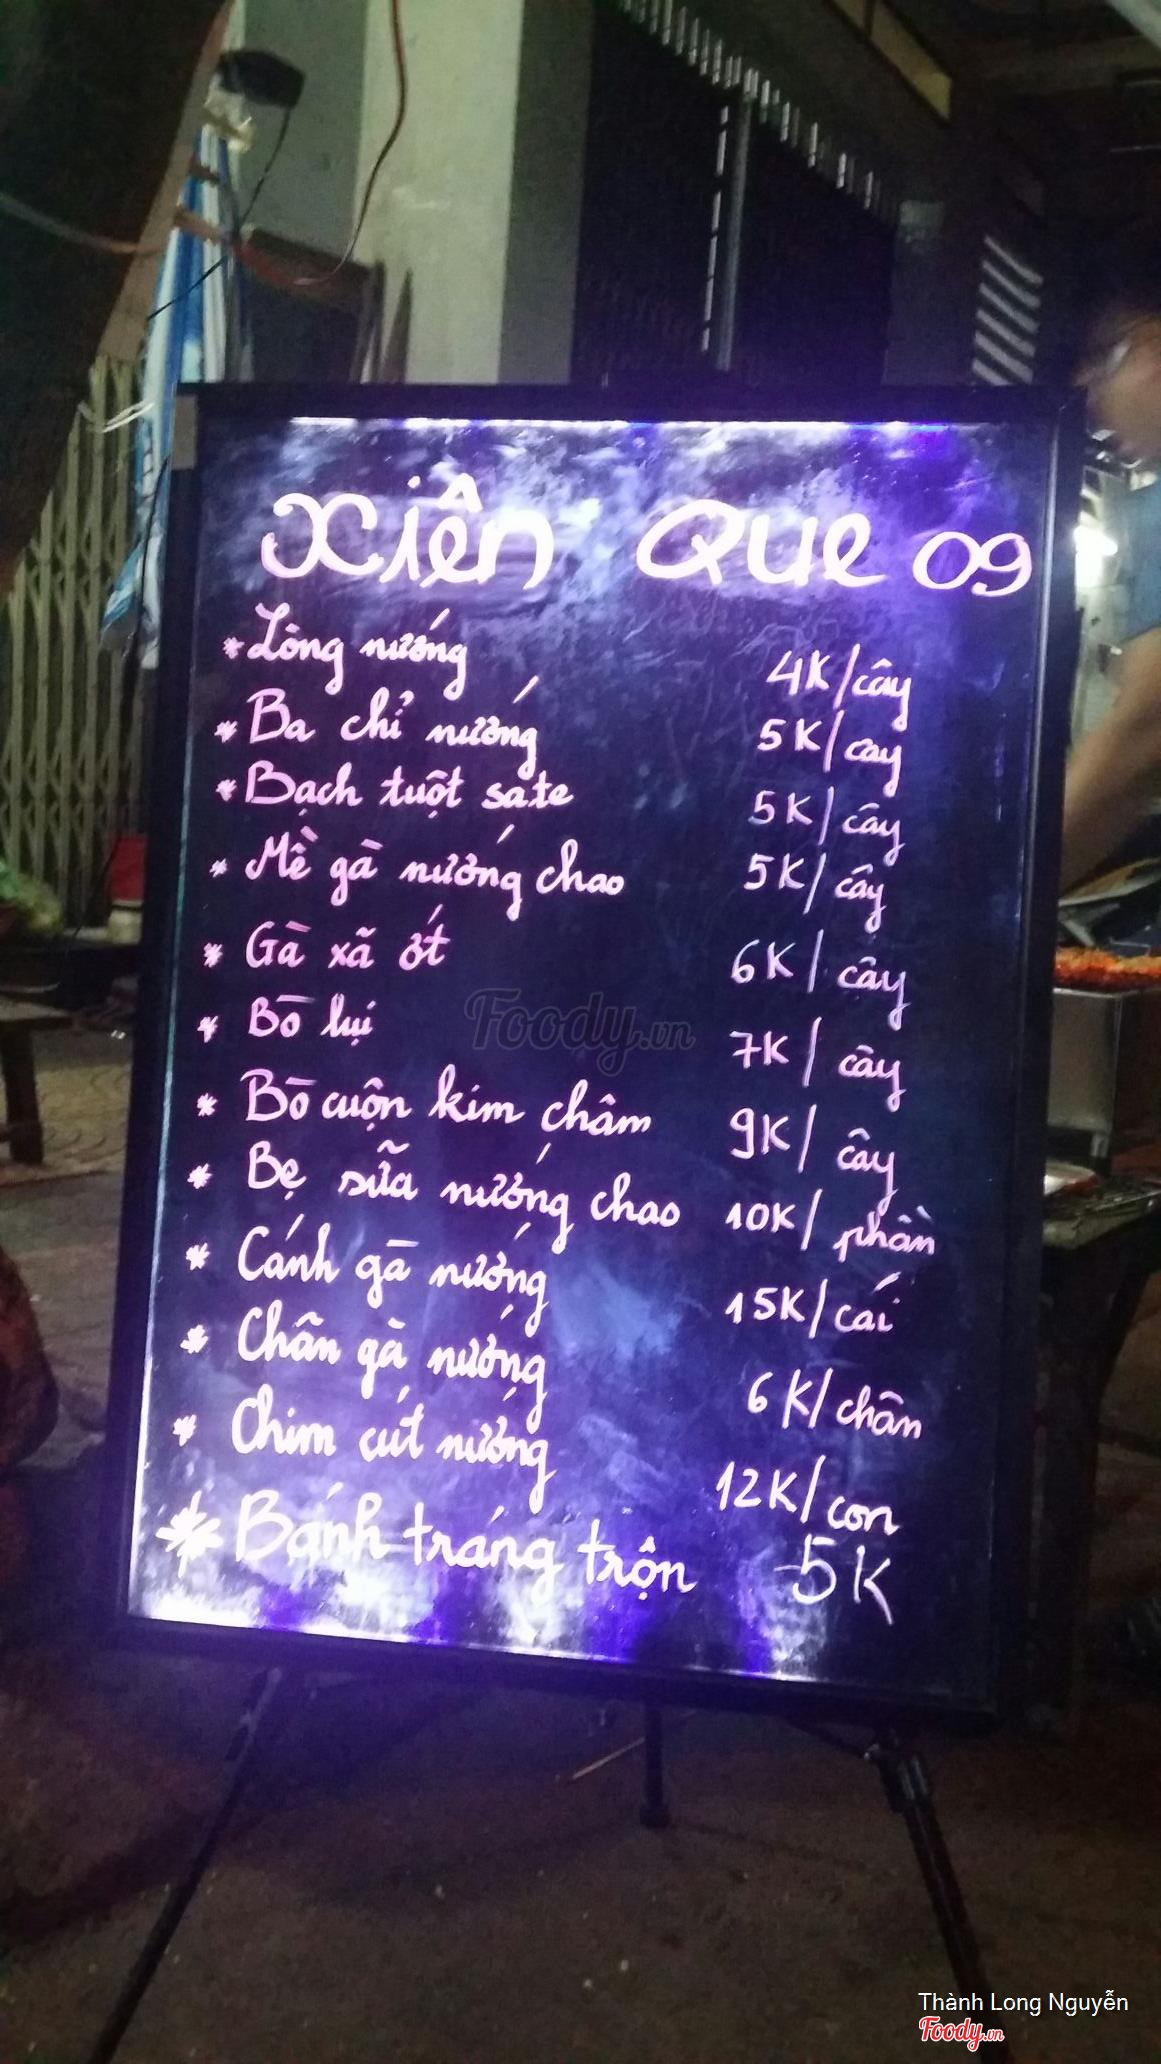 Xiên Que 09
* Lòng nướng 4K/cây
* Ba chỉ nướng 5K/cay
* Bạch tuột sate 5K/cây
* Mề gà nướng chao 5K/cây
* Gà xã ớt 6K/cây
* Bò lụi 7K/cây
* Bò cuộn kim châm 9K/cây
* Bẹ sữa nướng chao 10K/phần
* Cánh gà nướng 15K/cái
* Chân gà nướng 6K/chân
* Chim cút nướng 12K/con
* Bánh tráng trộn 5K
Foody.vn
Thành Long Nguyễn
Foody.vn